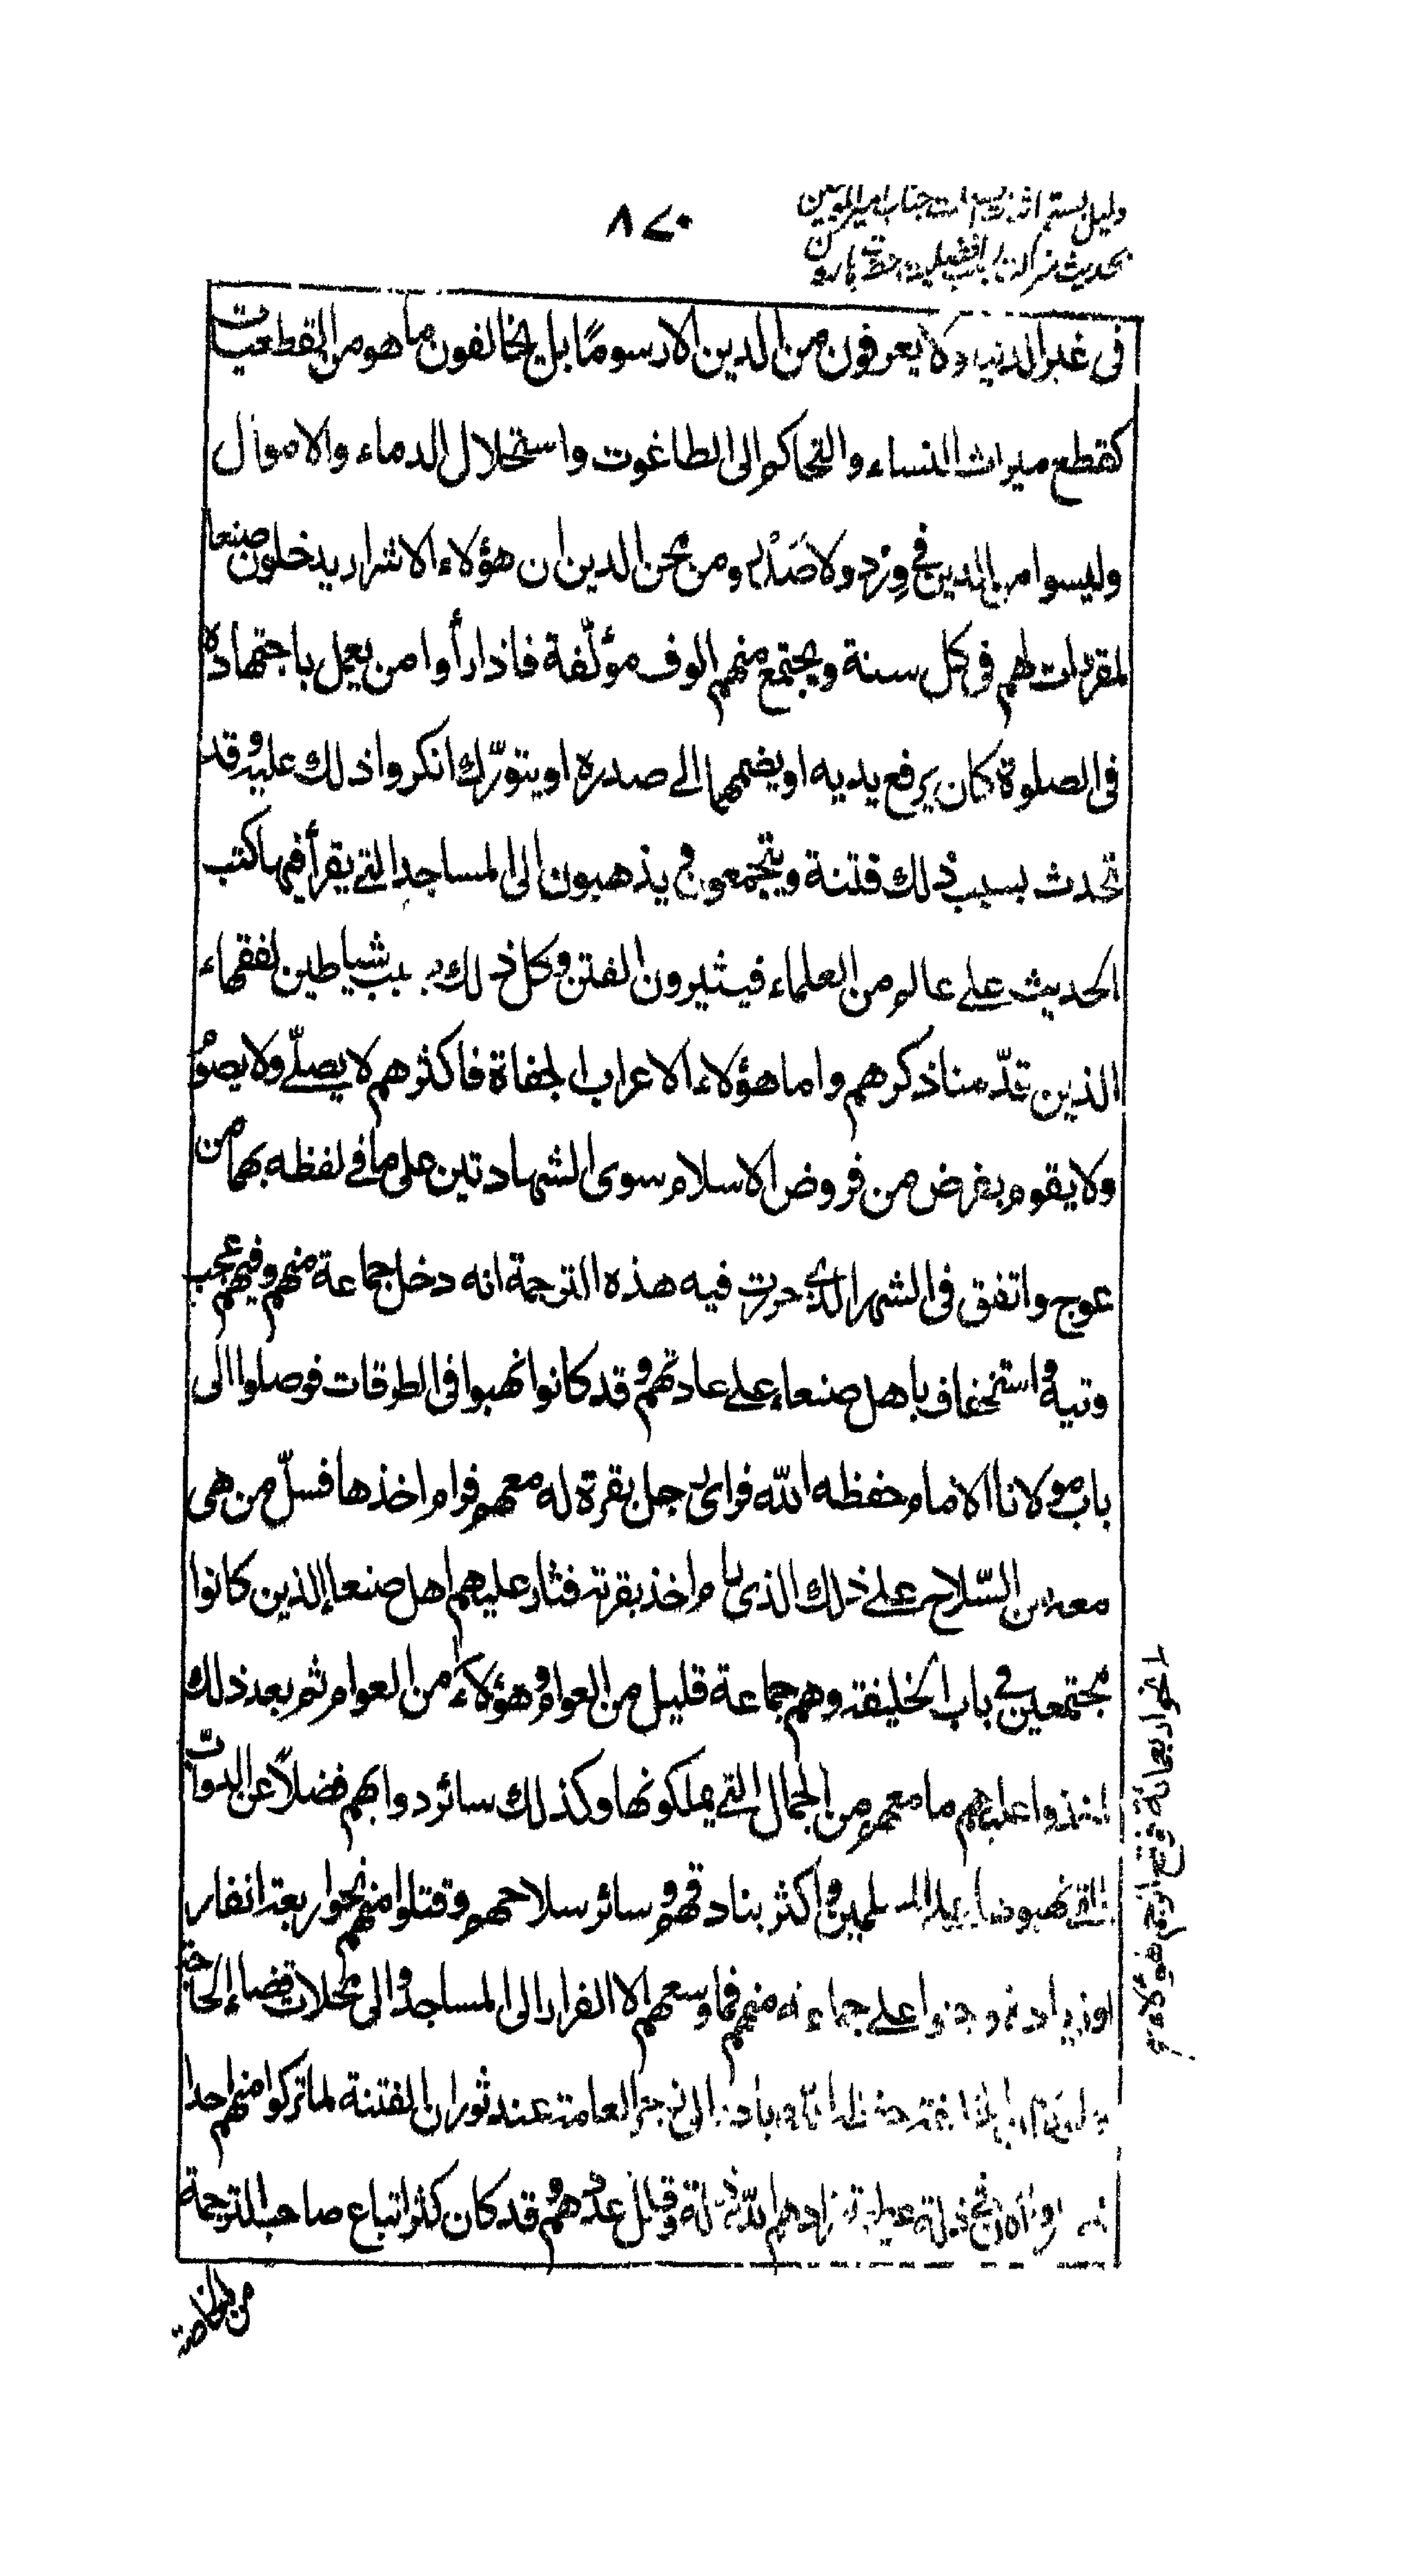 ٨٧٠
دليل بستم
بحديث منزلت
في غير الدنيا ولا يعرفون من الدين الا رسومًا بل يخالفون ما هو من القطعيات
كقطع ميراث النساء والتحاكم الى الطاغوت واستحلال الدماء والاموال
وليسوا من الدين في وِرْد ولا صَدَر ومن محن الدين ان هؤلاء الاشرار يدخلون صنعا
لمقررات لهم في كل سنة ويجتمع منهم الوف مؤلّفة فاذا رأوا من يعمل باجتهاده
في الصلوة كان يرفع يديه او يضمهما الى صدره او يتورّك انكروا ذلك عليه وقد
تحدث بسبب ذلك فتنة ويتجمعون ويذهبون الى المساجد التي يقرأ فيها كتب
الحديث على عالم من العلماء فيثيرون الفتن وكل ذلك بسبب شياطين الفقهاء
الذين قدّمنا ذكرهم واما هؤلاء الاعراب الجفاة فاكثرهم لا يصلّي ولا يصوم
ولا يقوم بفرض من فروض الاسلام سوى الشهادتين على ما في لفظه بهما من
عوج واتفق في الشهر الذي حررت فيه هذه الترجمة انه دخل جماعة منهم وفيهم عجب
وتيه واستخفاف باهل صنعاء على عادتهم وقد كانوا نهبوا في الطرقات فوصلوا الى
باب مولانا الامام حفظه الله فراى رجل بقرة له معهم فرام اخذها فسلّ من هي
معه من السّلاح على ذلك الذي رام اخذ بقرته فثار عليهم اهل صنعاء الذين كانوا
مجتمعين في باب الخليفة وهم جماعة قليل من العوام وهؤلاء من العوام ثم بعد ذلك
اخذوا عليهم ما معهم من الجمال التي يملكونها وكذلك سائر دوابهم فضلًا عن الدوابّ
التي نهبوها على المسلمين واكثر بنادقهم وسائر سلاحهم وقتلوا منهم نحو اربعة انفار
او زيادة وجنوا على جماعة منهم فما وسعهم الا الفرار الى المساجد والى محلات قضاء الحاجة
ولولا ان الخليفة حفظه الله بادر الى زجر العامة عند ثوران الفتنة لما تركوا منهم احدا
ذلة زادهم الله ذلة وقلل عددهم وقد كان كثر اتباع صاحب الترجمة
من الخاصة